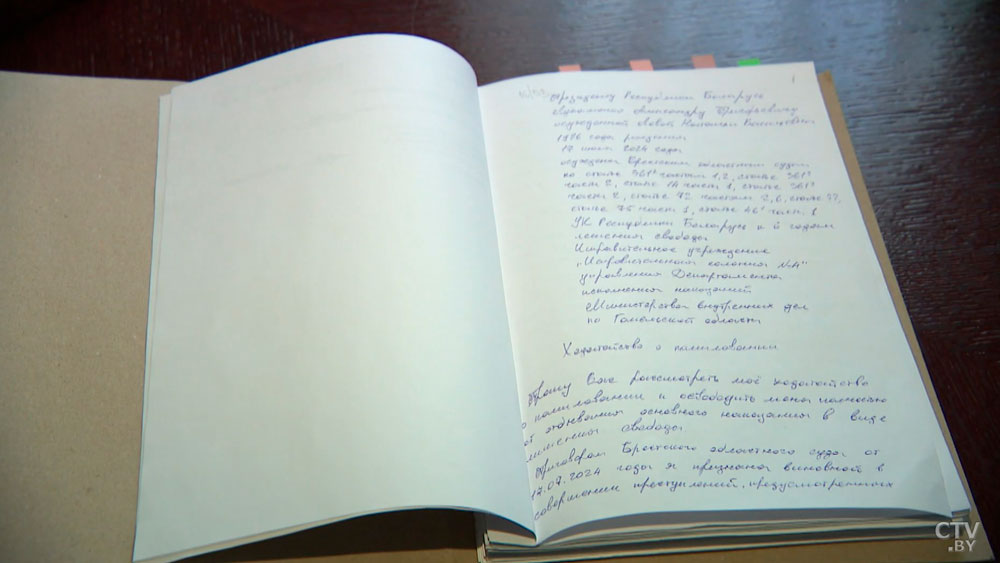 1
Президенту Республики Беларусь
Лукашенко Александру Григорьевичу
осужденной Натальи
1976 года рождения
17 июля 2024 года
осуждена Брестским областным судом
по статье 361¹ частям 1, 2, статье 361³
части 2, статье 14 части 1, статье 361³
части 2, статье 72 частям 2, 6, статье
статье 75 части 1, статье 46¹ части 1
УК Республики Беларусь к 6 годам
лишения свободы
Исправительное учреждение
"Исправительная колония №4"
управления Департамента
исполнения наказаний
Министерства внутренних дел
по Гомельской области
Ходатайство о помиловании
Прошу Вас рассмотреть моё ходатайство
о помиловании и освободить меня полностью
от отбывания основного наказания в виде
лишения свободы
Приговором Брестского областного суда от
17.07.2024 года я признана виновной в
совершении преступлений, предусмотренных
CTV
.BY